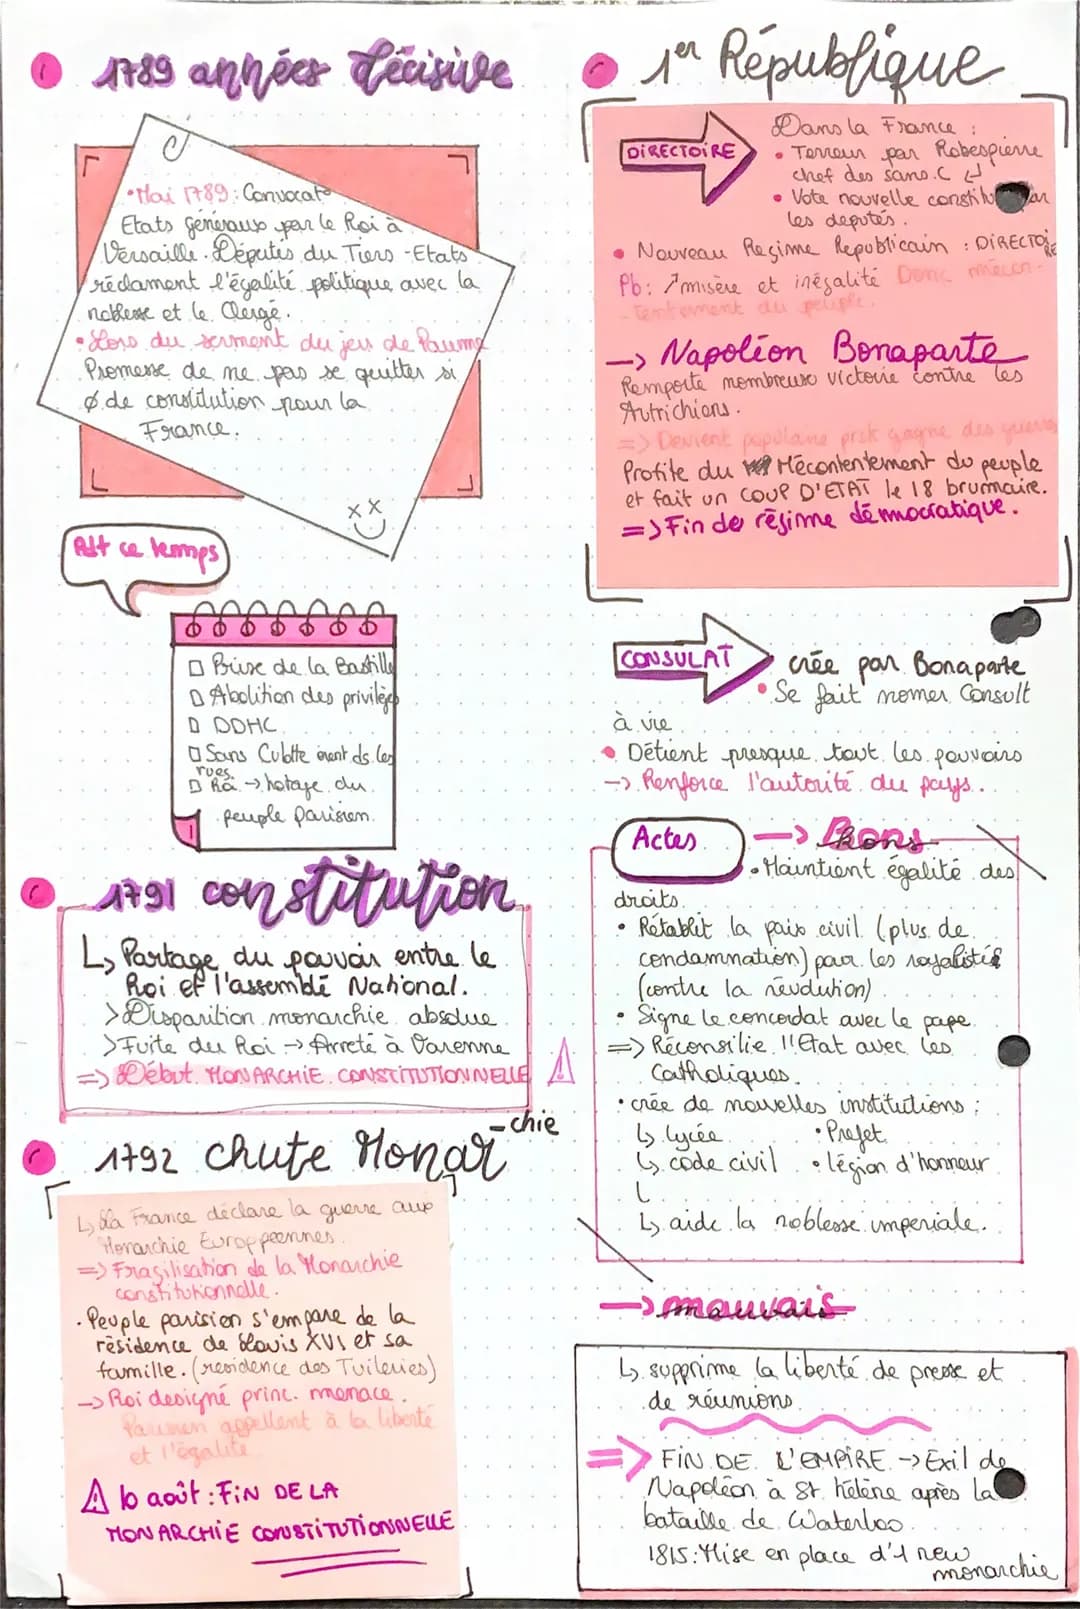 1789 années décisive
• Mai 1789 : Convocat°
Etats généraux par le Roi à
Versaille. Députés du Tiers-Etats
réclament l'égalité politique avec la
noblesse et le Clergé.
• Lors du serment du jeu de Paume
Promesse de ne pas se quitter si
Ø de constitution pour la
France.
xx
Pdt ce temps
Prise de la Bastille
Abolition des privilèges
DDHC
Sans Culotte ds les
rues.
Roi → hotage du
peuple parisien.
1791 constitution
↳ Partage du pouvoir entre le
Roi et l'assemblé National.
> Disparition monarchie absolue
> Fuite du Roi → Arreté à Varenne
=> Début MONARCHIE CONSTITUTIONNELLE
1792 chute Monar-chie
↳ La France déclare la guerre aux
Monarchie Europpeennes.
=> Fragilisation de la Monarchie
constitutionnelle.
• Peuple parision s'empare de la
résidence de Louis XVI et sa
famille. (residence des Tuileries)
→ Roi designé princ. menace.
Parisien appellent à la liberté
et l'égalité
10 août : FIN DE LA
MONARCHIE CONSTITUTIONNELLE
1er République
DIRECTOIRE
Dans la France :
• Terreur par Robespierre
chef des sans.C
• Vote nouvelle constitu par
les deputés.
• Nouveau Regime Republicain : DIRECTOIRE
Pb : ↗misère et inégalité Donc mécon-
-tentement du peuple.
→ Napoléon Bonaparte
Remporte nombreux victorie contre les
Autrichiens.
=> Devient populaire prsk gagne des guerres
Profite du Mécontentement du peuple
et fait un COUP D'ETAT le 18 brumaire.
=> Fin de régime démocratique.
CONSULAT
crée par Bonaparte
• Se fait nomer Consult
à vie
• Détient presque tout les pouvoirs
→ Renforce l'autorité du pays..
Actes
→ Bons
• Maintient égalité des
droits.
• Rétablit la paix civil (plus de
condamnation) pour les royalistes
(contre la révolution)
• Signe le concordat avec le pape.
=> Réconsilie l'Etat avec les
Catholiques.
• crée de nouvelles institutions ;
↳ lycée • Prefet
↳ code civil • légion d'honneur
↳ aide la noblesse imperiale.
→ mauvais
↳ supprime la liberté de presse et
de réunions
=> FIN DE L'EMPIRE → Exil de
Napoléon à St hélène après la
bataille de Waterloo.
1815 : Mise en place d'1 new
monarchie